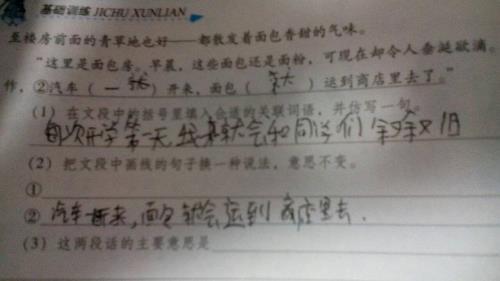 基础训练 JICHU XUNLIAN
至楼房前面的青草地也好——都散发着面包香甜的气味。
“这里是面包房。早晨,这些面包还是面粉,可现在却令人垂涎欲滴。
作,②汽车(一就)开来,面包(就)运到商店里去了。”
(1)在文段中的括号里填入合适的关联词语,并仿写一句。
每次开学第一天,我都会和同学们
(2)把文段中画线的句子换一种说法,意思不变。
①
②汽车一开来,面包就会运到商店里去.
(3)这两段话的主要意思是